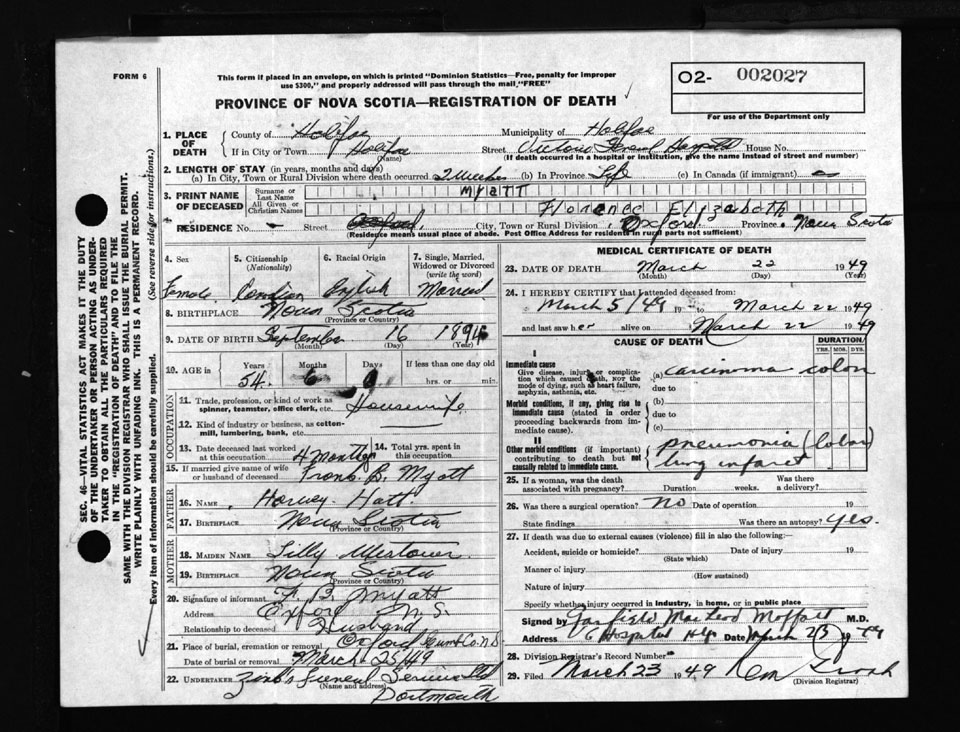 FORM 6
This form if placed in an envelope, on which is printed "Dominion Statistics—Free, penalty for improper
use $300," and properly addressed will pass through the mail "FREE"
O2- 002027
For use of the Department only
PROVINCE OF NOVA SCOTIA—REGISTRATION OF DEATH
SEC. 46—VITAL STATISTICS ACT MAKES IT THE DUTY
OF THE UNDERTAKER OR PERSON ACTING AS UNDER-
TAKER TO OBTAIN ALL THE PARTICULARS REQUIRED
IN THE "REGISTRATION OF DEATH" AND TO FILE THE
SAME WITH THE DIVISION REGISTRAR WHO SHALL ISSUE THE BURIAL PERMIT.
WRITE PLAINLY WITH UNFADING INK. THIS IS A PERMANENT RECORD.
Every item of Information should be carefully supplied. (See reverse side for instructions.)
1. PLACE OF DEATH County of Halifax Municipality of Halifax
If in City or Town Halifax (Name) Street Victoria General Hospital House No.
(If death occurred in a hospital or institution, give the name instead of street and number)
2. LENGTH OF STAY (in years, months and days)
(a) In City, Town or Rural Division where death occurred 2 Weeks (b) In Province Life (c) In Canada (if immigrant)
3. PRINT NAME OF DECEASED Surname or Last Name MYATT
All Given or Christian Names Florence Elizabeth
RESIDENCE No. Street Oxford City, Town or Rural Division Oxford Province Nova Scotia
(Residence means usual place of abode. Post Office Address for residents in rural parts not sufficient)
4. Sex Female
5. Citizenship (Nationality) Canadian
6. Racial Origin English
7. Single, Married, Widowed or Divorced (write the word) Married
8. BIRTHPLACE Nova Scotia
(Province or Country)
9. DATE OF BIRTH September 16 1894
(Month) (Day) (Year)
10. AGE in Years 54 Months 6 Days If less than one day old hrs. or min.
OCCUPATION
11. Trade, profession, or kind of work as spinner, teamster, office clerk, etc. Housewife
12. Kind of industry or business, as cotton-mill, lumbering, bank, etc.
13. Date deceased last worked at this occupation 4 months
14. Total yrs. spent in this occupation
15. If married give name of wife or husband of deceased Frank B. Myatt
FATHER
16. Name Harvey Hatt
17. Birthplace Nova Scotia
(Province or Country)
MOTHER
18. MAIDEN NAME Lilly
19. BIRTHPLACE Nova Scotia
(Province or Country)
20. Signature of informant F. B. Myatt
Address Oxford N.S.
Relationship to deceased Husband
21. Place of burial, cremation or removal Oxford Cumb Co. N.S.
Date of burial or removal March 25/49
22. UNDERTAKER Zink's Funeral Service Ltd
(Name and address) Dartmouth
MEDICAL CERTIFICATE OF DEATH
23. DATE OF DEATH March 22 1949
(Month) (Day) (Year)
24. I HEREBY CERTIFY that I attended deceased from:
March 5/49 19 to March 22 1949
and last saw her alive on March 22 1949
CAUSE OF DEATH DURATION
YRS. MOS. DYS.
I
Immediate cause
Give disease, injury or complication which caused death, NOT the mode of dying, such as heart failure, asphyxia, asthenia, etc.
(a) carcinoma colon
due to
Morbid conditions, if any, giving rise to immediate cause (stated in order proceeding backwards from immediate cause).
(b)
due to
(c)
II
Other morbid conditions (if important) contributing to death but not causally related to immediate cause.
pneumonia (lobar)
lung infarct
25. If a woman, was the death associated with pregnancy? Duration weeks. Was there a delivery?
26. Was there a surgical operation? No Date of operation 19
State findings Was there an autopsy? Yes.
27. If death was due to external causes (violence) fill in also the following:—
Accident, suicide or homicide? Date of injury 19
(State which)
Manner of injury
(How sustained)
Nature of injury
Specify whether injury occurred in industry, in home, or in public place
Signed by Garfield MacLeod Moffatt M.D.
Address Hospital Hfx Date March 23 19 49
28. Division Registrar's Record Number
29. Filed March 23 1949
(Division Registrar)